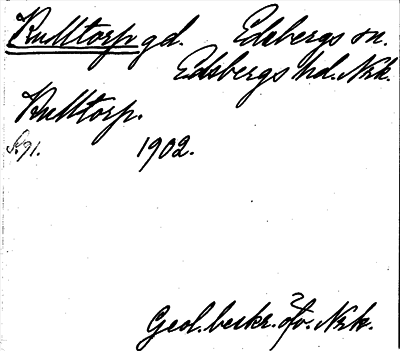 Kulltorp gd. Edsbergs sn.
Edsbergs hd. Nrk.
Kulltorp.
S. 91. 1902.
Geol. beskr. öfv. Nrk.